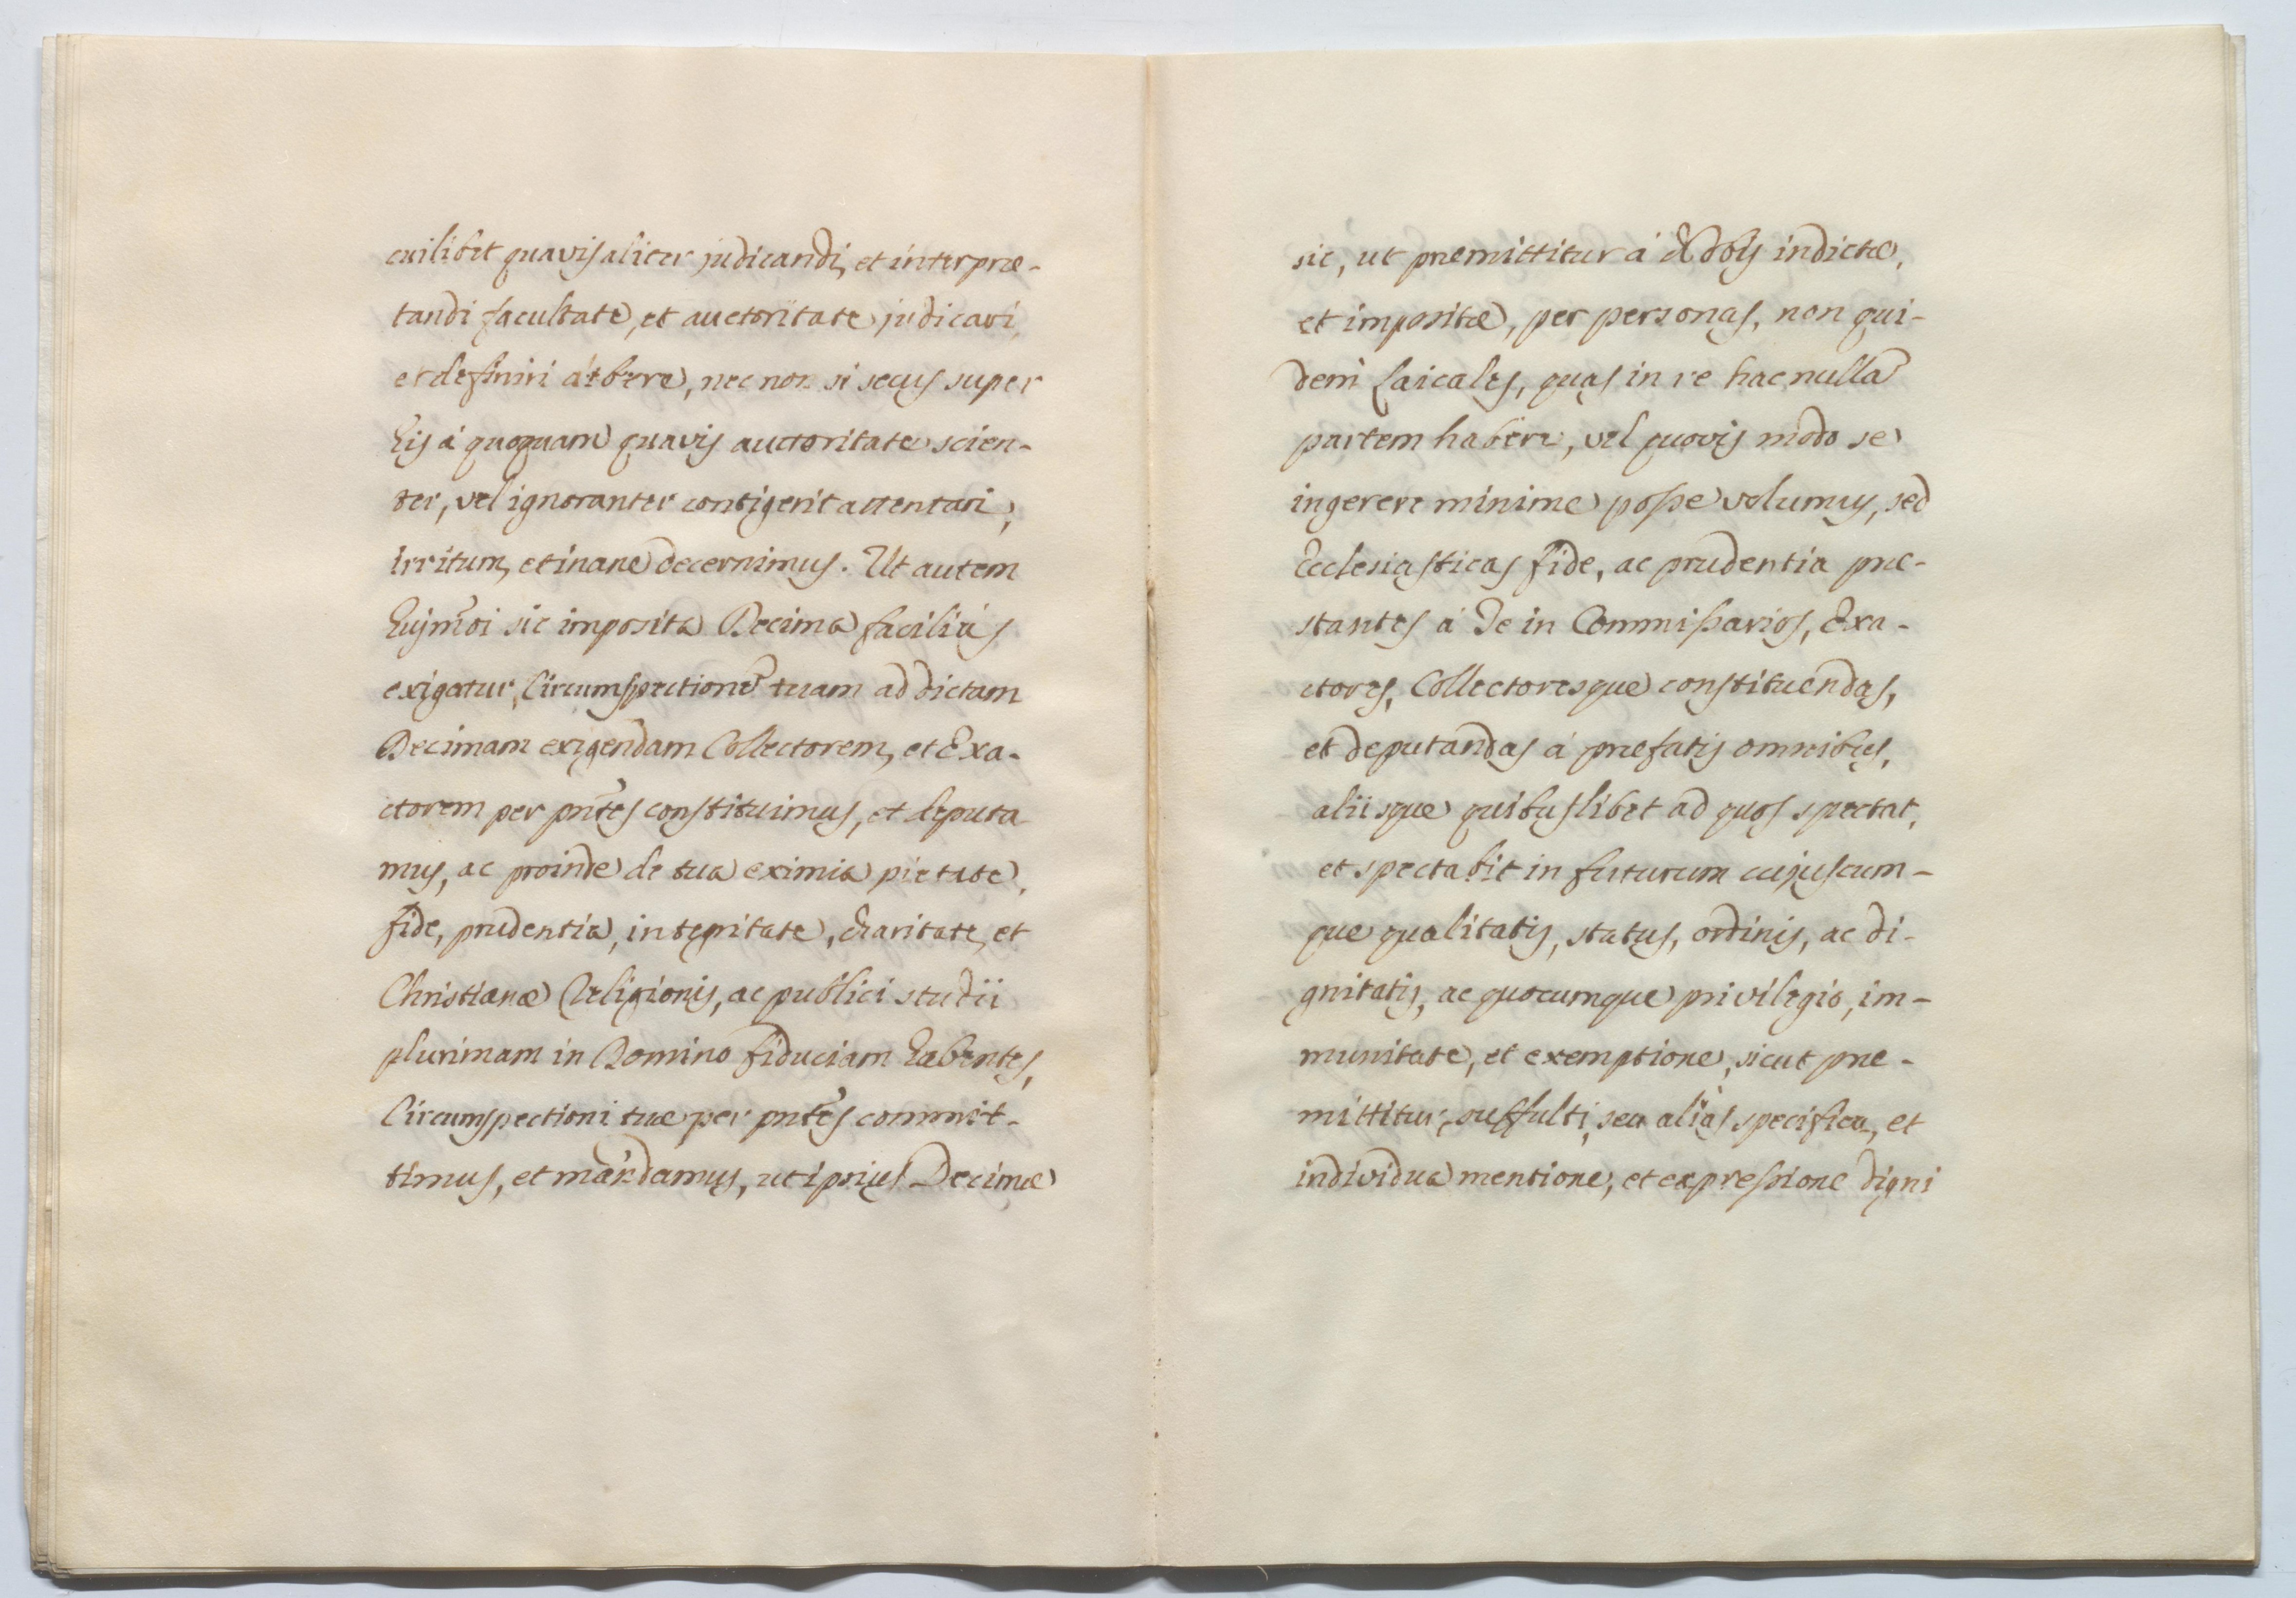 cuilibet quavis aliter judicandi, et interpræ-
tandi facultate, et auctoritate judicari,
et definiri debere, nec non si secus super
his á quoquam quavis auctoritate scien-
ter, vel ignoranter contigerit attentari,
irritum, et inane decernimus. Ut autem
hujm̃oi sic imposita Decima faciliùs
exigatur, Circumspectionẽ tuam ad dictam
Decimam exigendam Collectorem, et Exa-
ctorem per pñtes constituimus, et deputa
mus, ac proinde de tua eximia pietate,
fide, prudentia, integritate, charitate, et
Christianæ Religionis, ac publici studii
plurimam in Domino fiduciam habentes,
Circumspectioni tuæ per pñtes commit-
timus, et mandamus, ut ipsius Decimæ
sic, ut præmittitur á Nobis indictæ,
et impositæ, per personas, non qui-
dem Laicales, quas in re hac nulla
partem habere, vel quovis modo se
ingerere minime posse volumus, sed
Ecclesiasticas fide, ac prudentia præ-
stantes á Te in Commissarios, Exa-
ctores, Collectoresque constituendas,
et deputandas á præfatis omnibus,
aliisque quibuslibet ad quos spectat,
et spectabit in futurum cujuscum-
que qualitatis, status, ordinis, ac di-
gnitatis, ac quocumque privilegio, im-
munitate, et exemptione, sicut præ-
mittitur, suffulti, seu aliàs specifica, et
individua mentione, et expressione digni